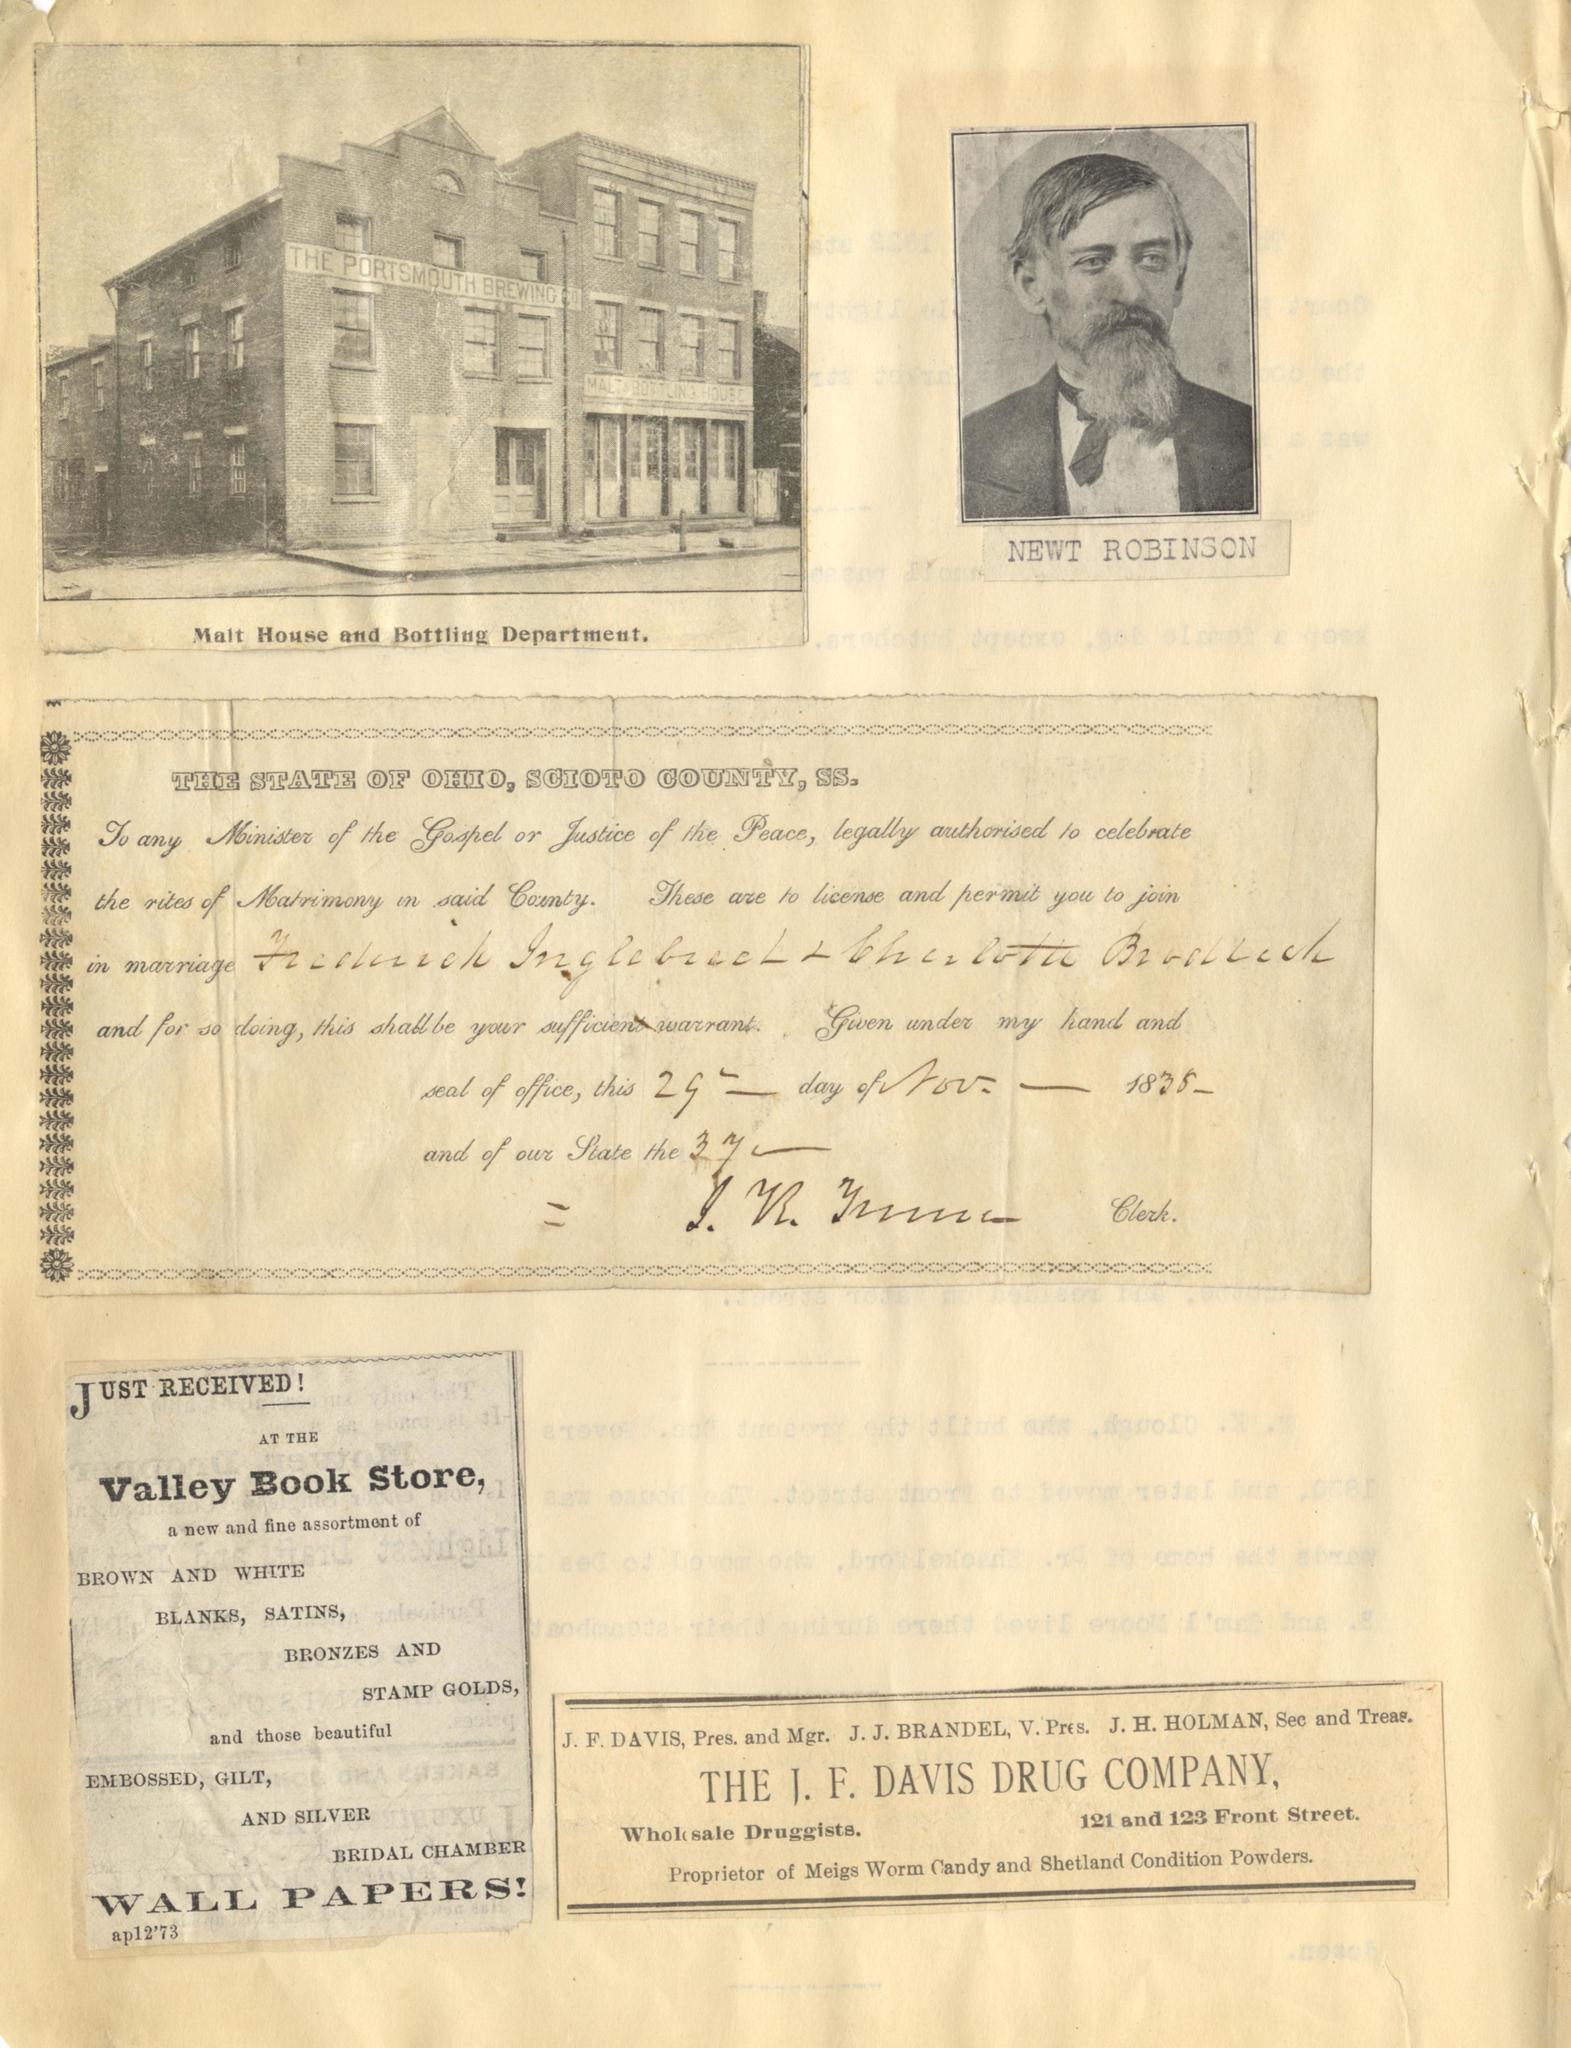 THE PORTSMOUTH BREWING CO
MALT & BOTTLING HOUSE
Malt House and Bottling Department.
NEWT ROBINSON
THE STATE OF OHIO, SCIOTO COUNTY, SS.
To any Minister of the Gospel or Justice of the Peace, legally authorised to celebrate
the rites of Matrimony in said County. These are to license and permit you to join
in marriage Frederick Inglebrecht & Charlotte
and for so doing, this shall be your sufficient warrant. Given under my hand and
seal of office, this 29th day of Nov. 1838
and of our State the 37
Clerk.
JUST RECEIVED!
AT THE
Valley Book Store,
a new and fine assortment of
BROWN AND WHITE
BLANKS, SATINS,
BRONZES AND
STAMP GOLDS,
and those beautiful
EMBOSSED, GILT,
AND SILVER
BRIDAL CHAMBER
WALL PAPERS!
ap12'73
J. F. DAVIS, Pres. and Mgr. J. J. BRANDEL, V. Pres. J. H. HOLMAN, Sec and Treas.
THE J. F. DAVIS DRUG COMPANY,
Wholesale Druggists. 121 and 123 Front Street.
Proprietor of Meigs Worm Candy and Shetland Condition Powders.